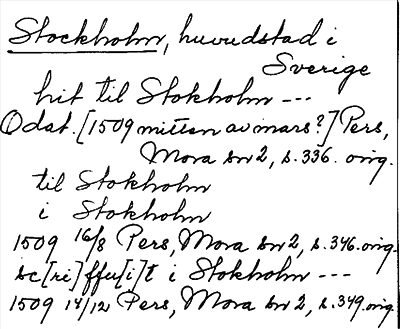 Stockholm, huvudstad i
Sverige
hit til Stokholm ---
Odat. [1509 mitten av mars?] Pers,
Mora sn 2, s. 336. orig.
til Stokholm
i Stokholm
1509 16/8 Pers, Mora sn 2, s. 346. orig.
sc[ri]ffu[i]t i Stokholm ---
1509 14/12 Pers, Mora sn 2, s. 349. orig.